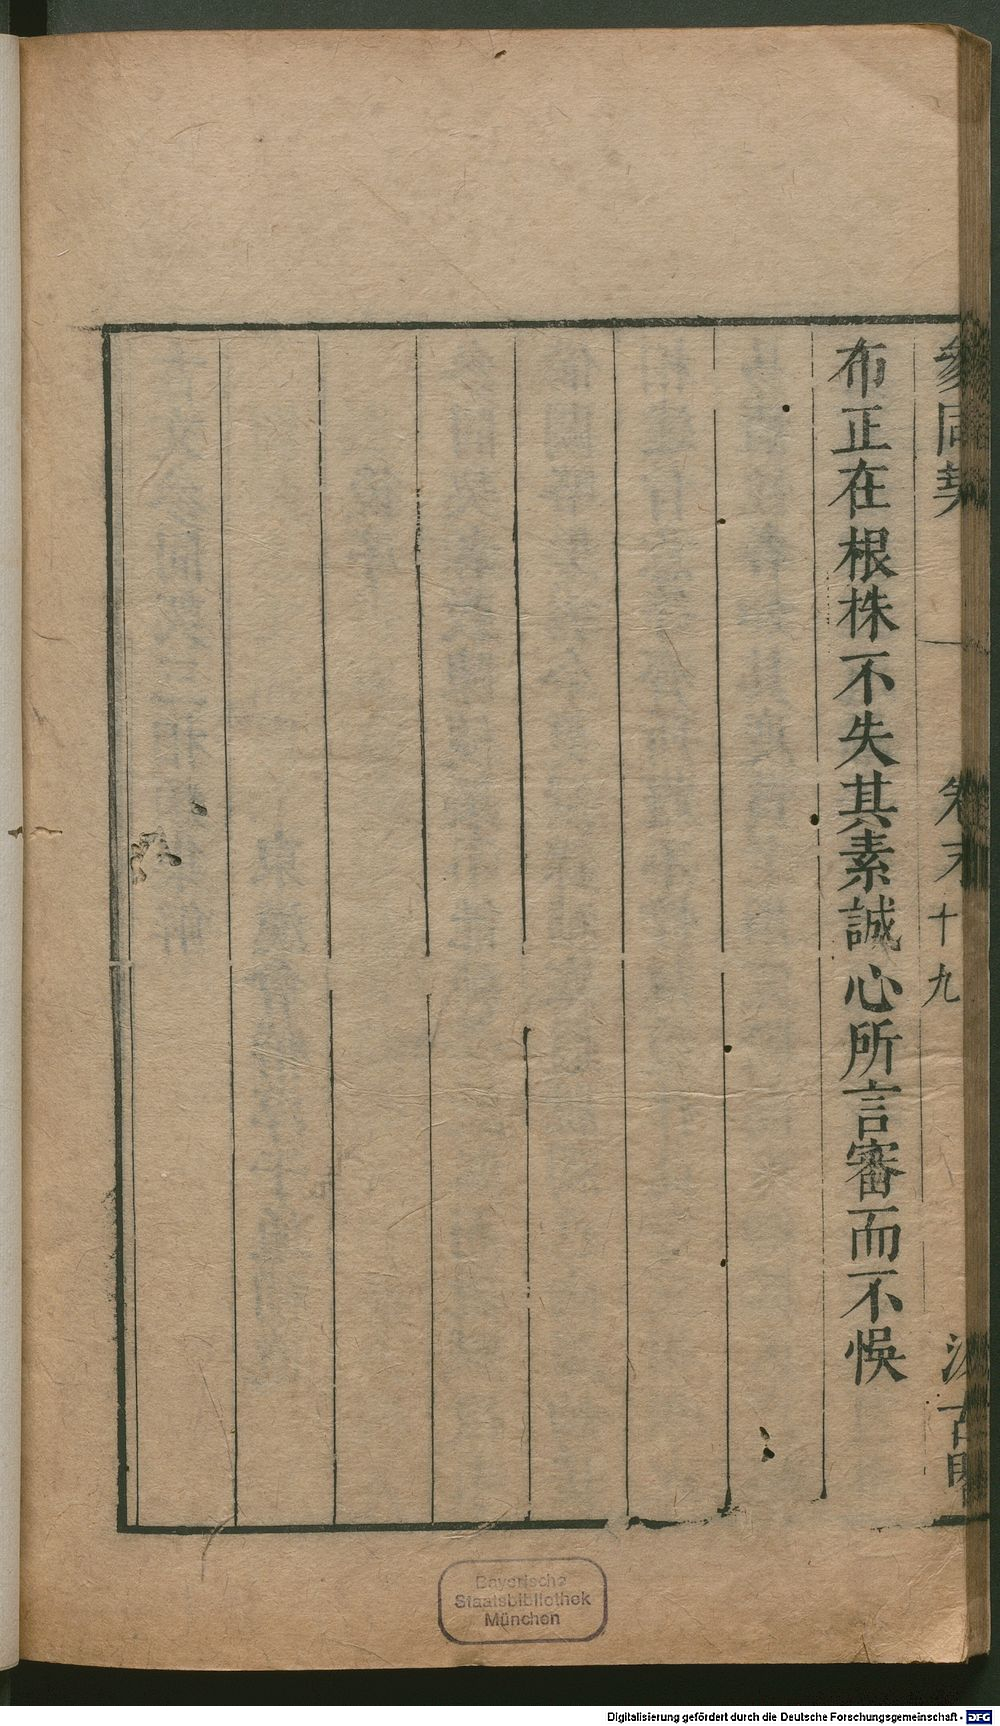 參同契 卷下 十九 汲古閣
布正在根株不失其素誠心所言審而不悞
Bayerische
Staatsbibliothek
München
Digitalisierung gefördert durch die Deutsche Forschungsgemeinschaft - DFG